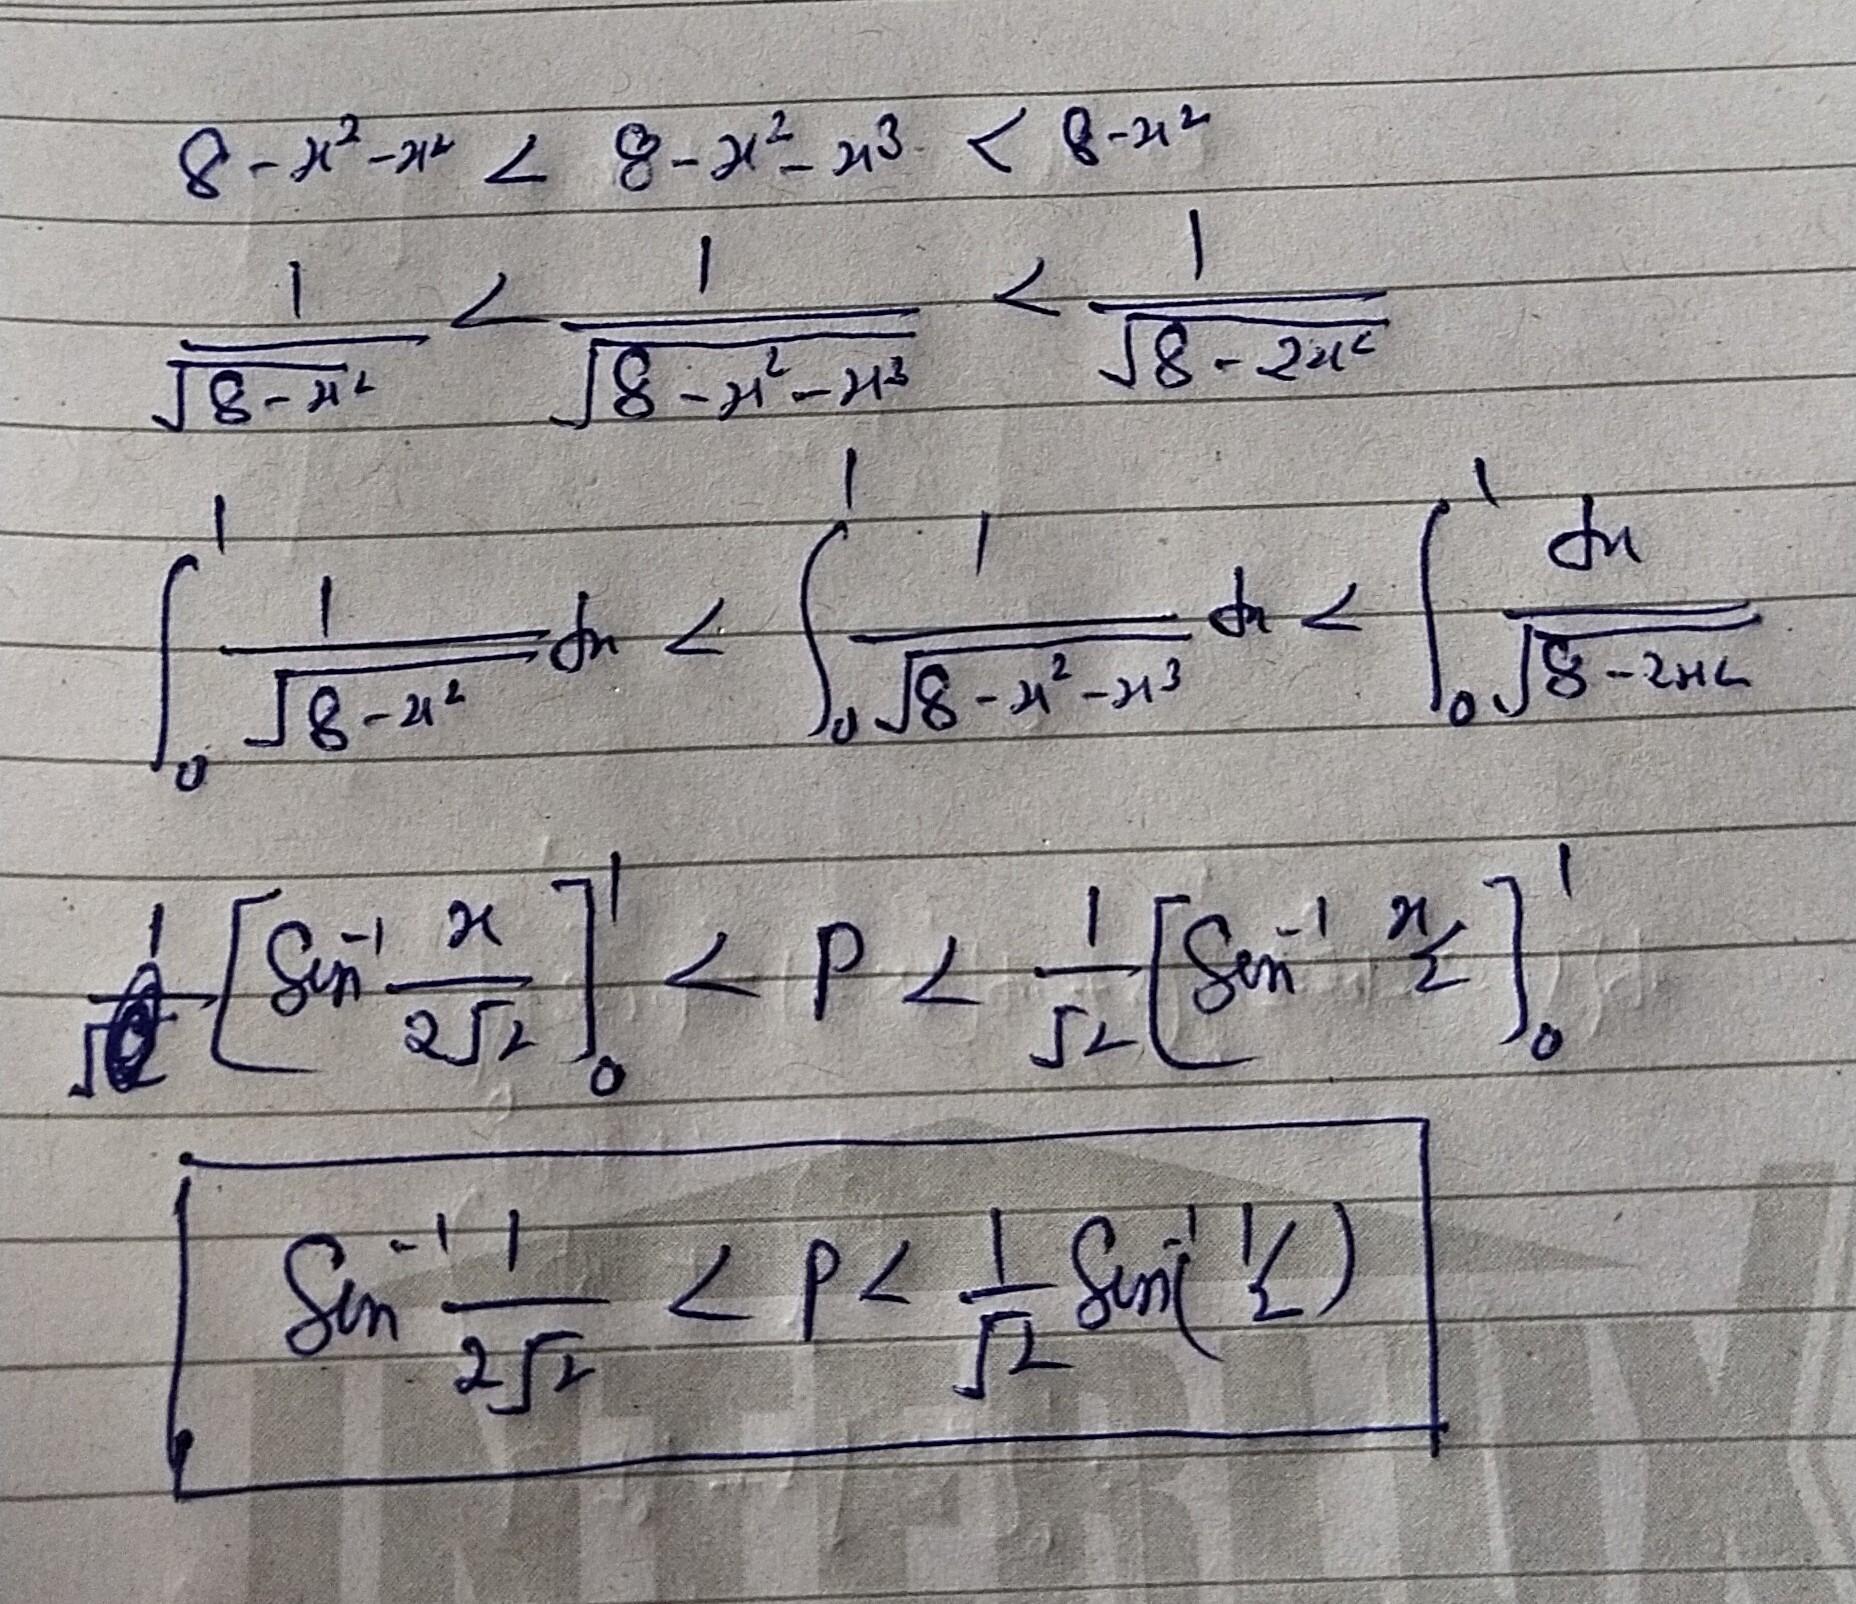 8 - x² - x² < 8 - x² - x³ < 8 - x²
1/√(8 - x²) < 1/√(8 - x² - x³) < 1/√(8 - 2x²)
∫₀¹ 1/√(8 - x²) dx < ∫₀¹ 1/√(8 - x² - x³) dx < ∫₀¹ dx/√(8 - 2x²)
1/√ [Sin⁻¹ x/2√2]₀¹ < P < 1/√2 [Sin⁻¹ x/2]₀¹
Sin⁻¹ 1/2√2 < P < 1/√2 Sin⁻¹(1/2)